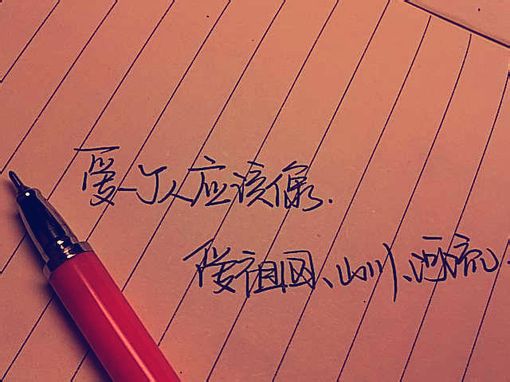 爱一个人应该像.
爱祖国、山川、河流.